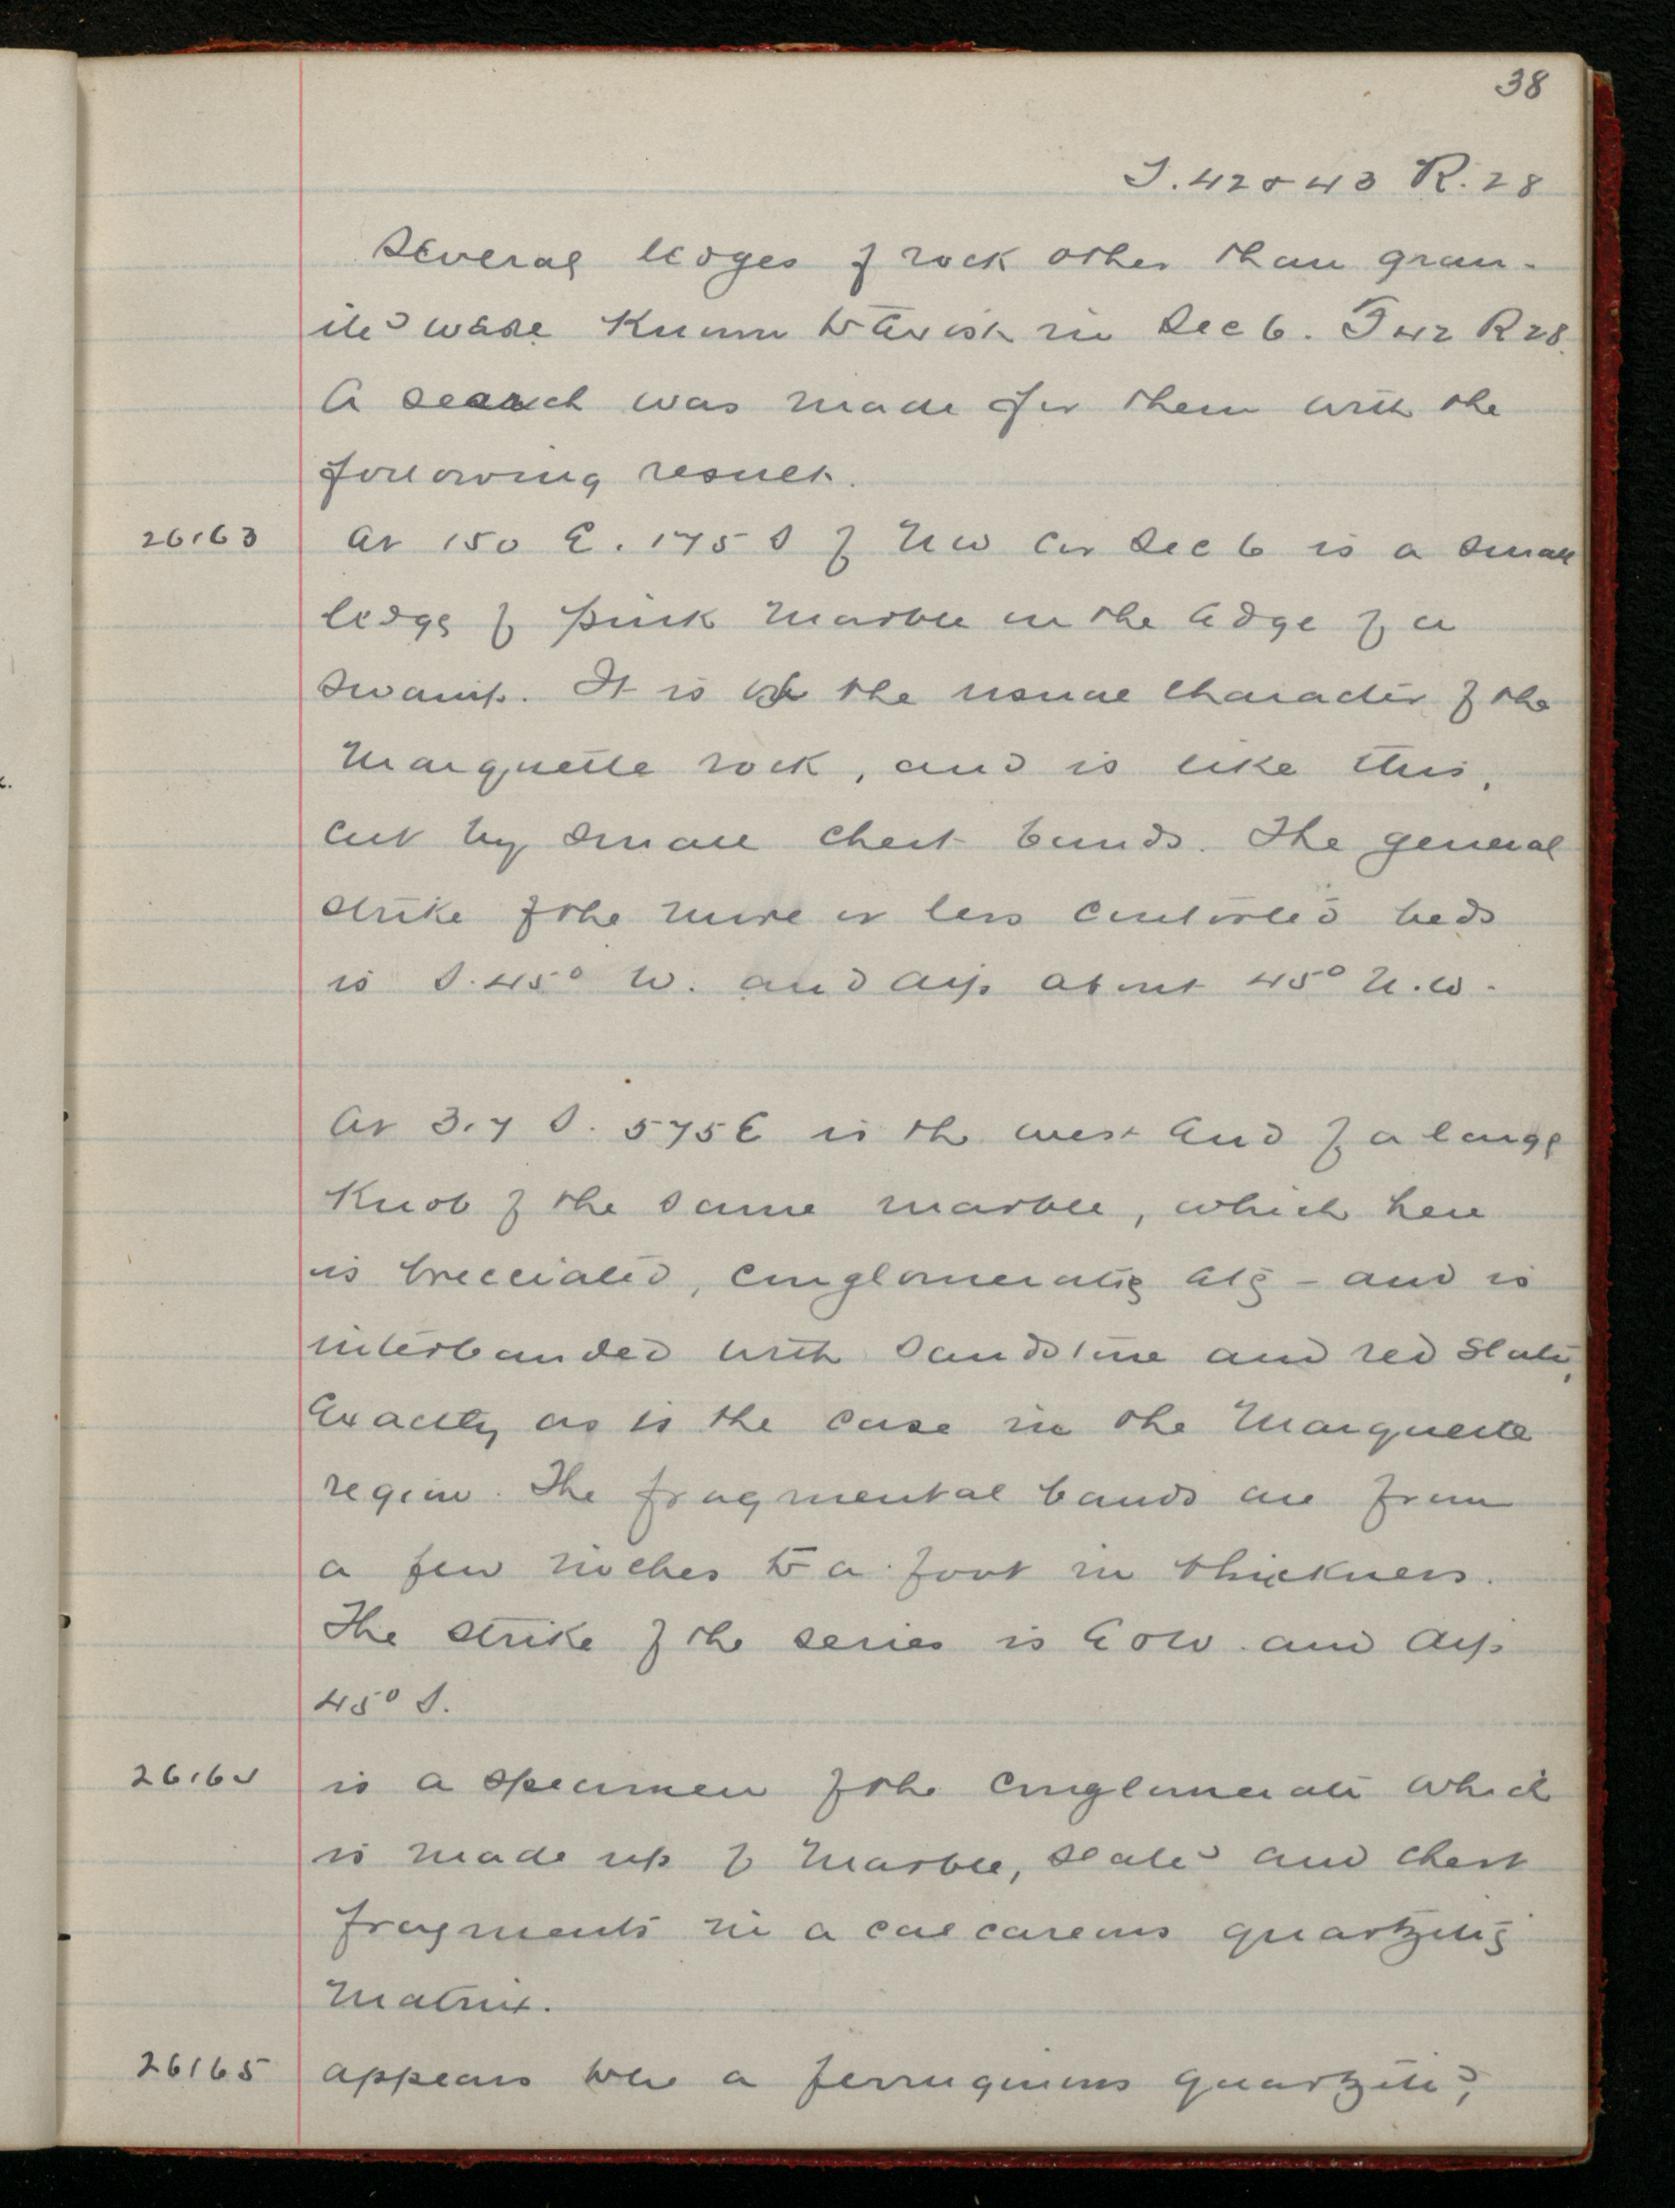 38
T. 42 & 43 R. 28
Several ledges of rock other than gran-
ite were known to exist in Sec 6. T 42 R 28.
A search was made for them with the
following result.
26163 At 150 E. 175 S of NW Cor Sec 6 is a small
ledge of pink marble in the edge of a
swamp. It is of the usual character of the
Marquette rock, and is like this,
cut by small chert bands. The general
strike of the more or less contorted beds
is S. 45° W. and dip about 45° N.W.
At 317 S. 575 E is the west end of a large
knob of the same marble, which here
is brecciated, conglomeratic etc - and is
interbanded with sandstone and red slate,
Exactly as is the case in the Marquette
region. The fragmental bands are from
a few inches to a foot in thickness.
The strike of the series is E & W. and dip
45° S.
26164 is a specimen of the conglomerate which
is made up of marble, slate and chert
fragments in a calcareous quartzitic
matrix.
26165 appears to be a ferruginous quartzite,